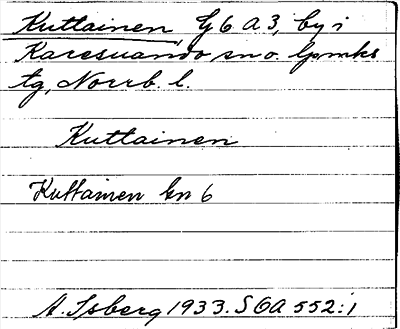 Kuttainen G 6 A 3, by i
Karesuando sn o. lpmks
tg, Norrb. l.
Kuttainen
Kuttainen Gn 6
A. Isberg 1933. SOA 552:1